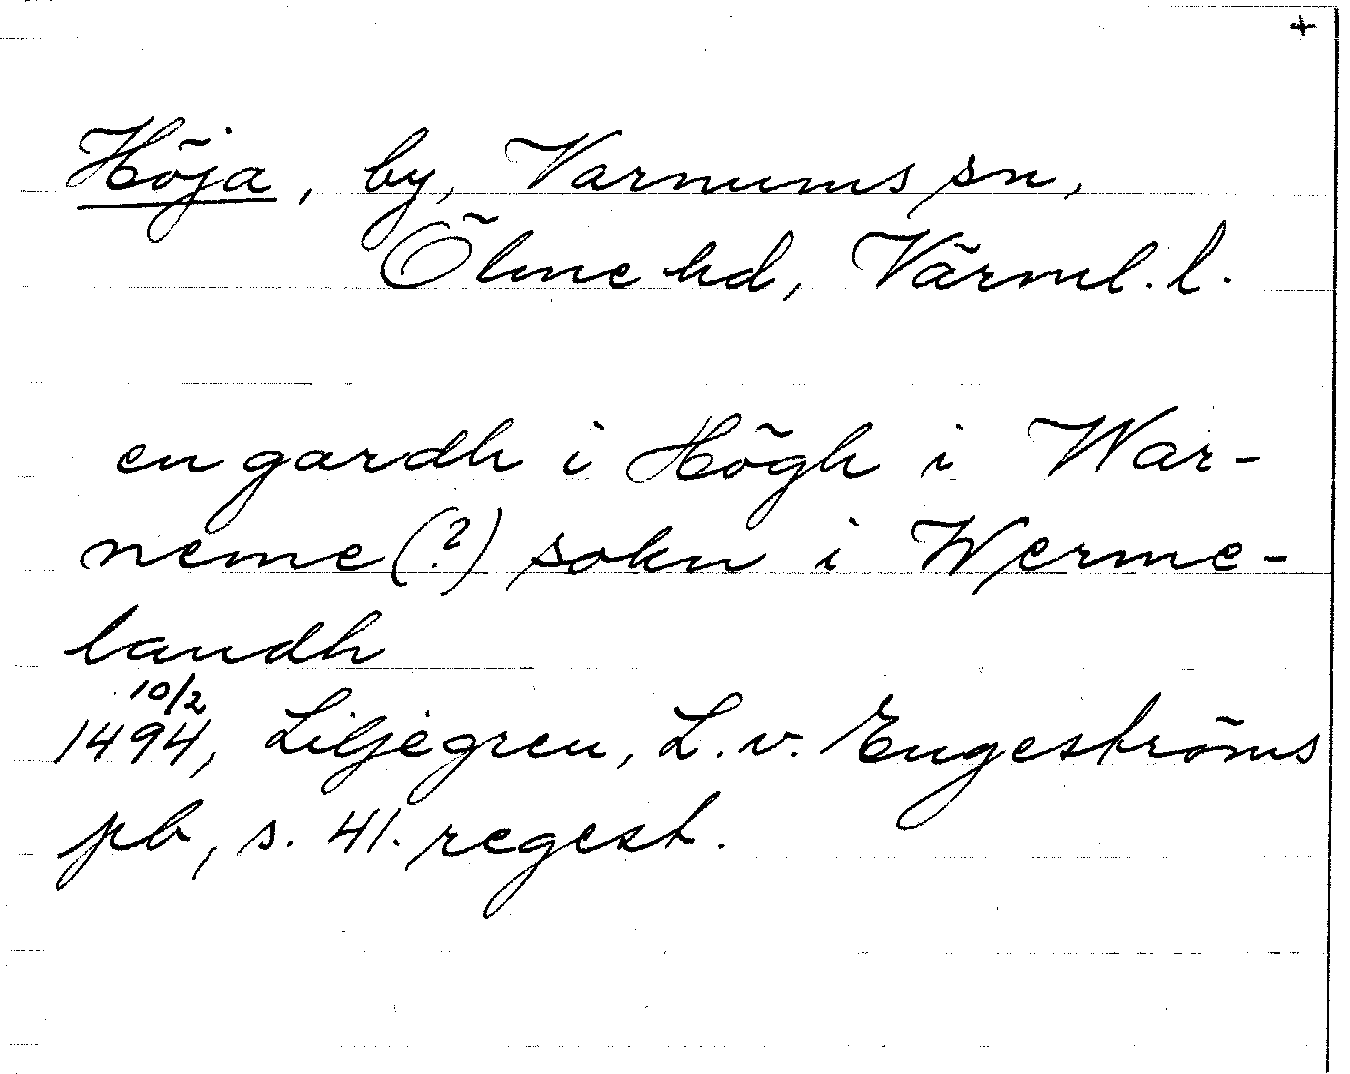 +
Höja, by, Varnums sn,
Ölme hd, Värml. l.
en gardh i Högh i War-
neme(?) sokn i Werme-
landh
10/2
1494, Liljegren, L. v. Engeströms
pb, s. 41. regest.